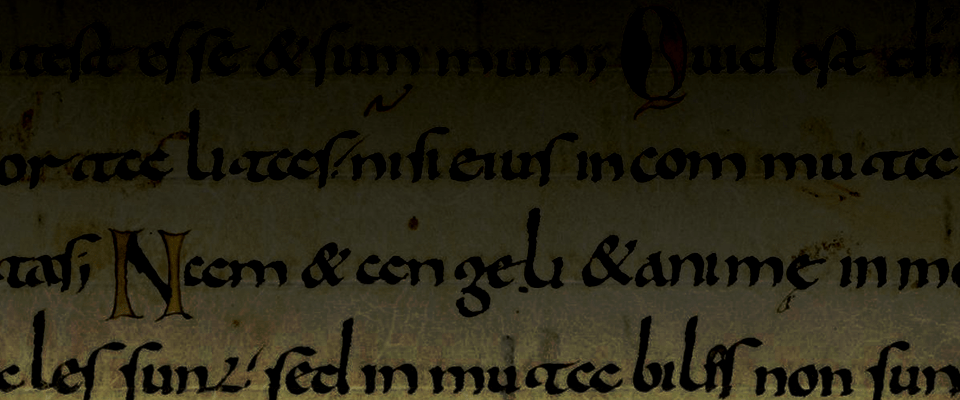 test esse & summum; Quid est di
ortalitas, nisi eius incommuta
tas; Nam & angeli & animę inmo
les sunt, sed inmutabiles non sun